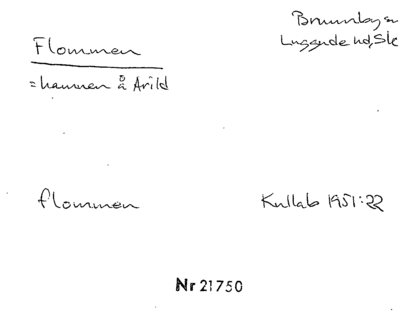 Flommen
Brunnby sn
Luggude hd, Sk
= hamnen å Arild
flommen
Kullab 1951:22
Nr 21750